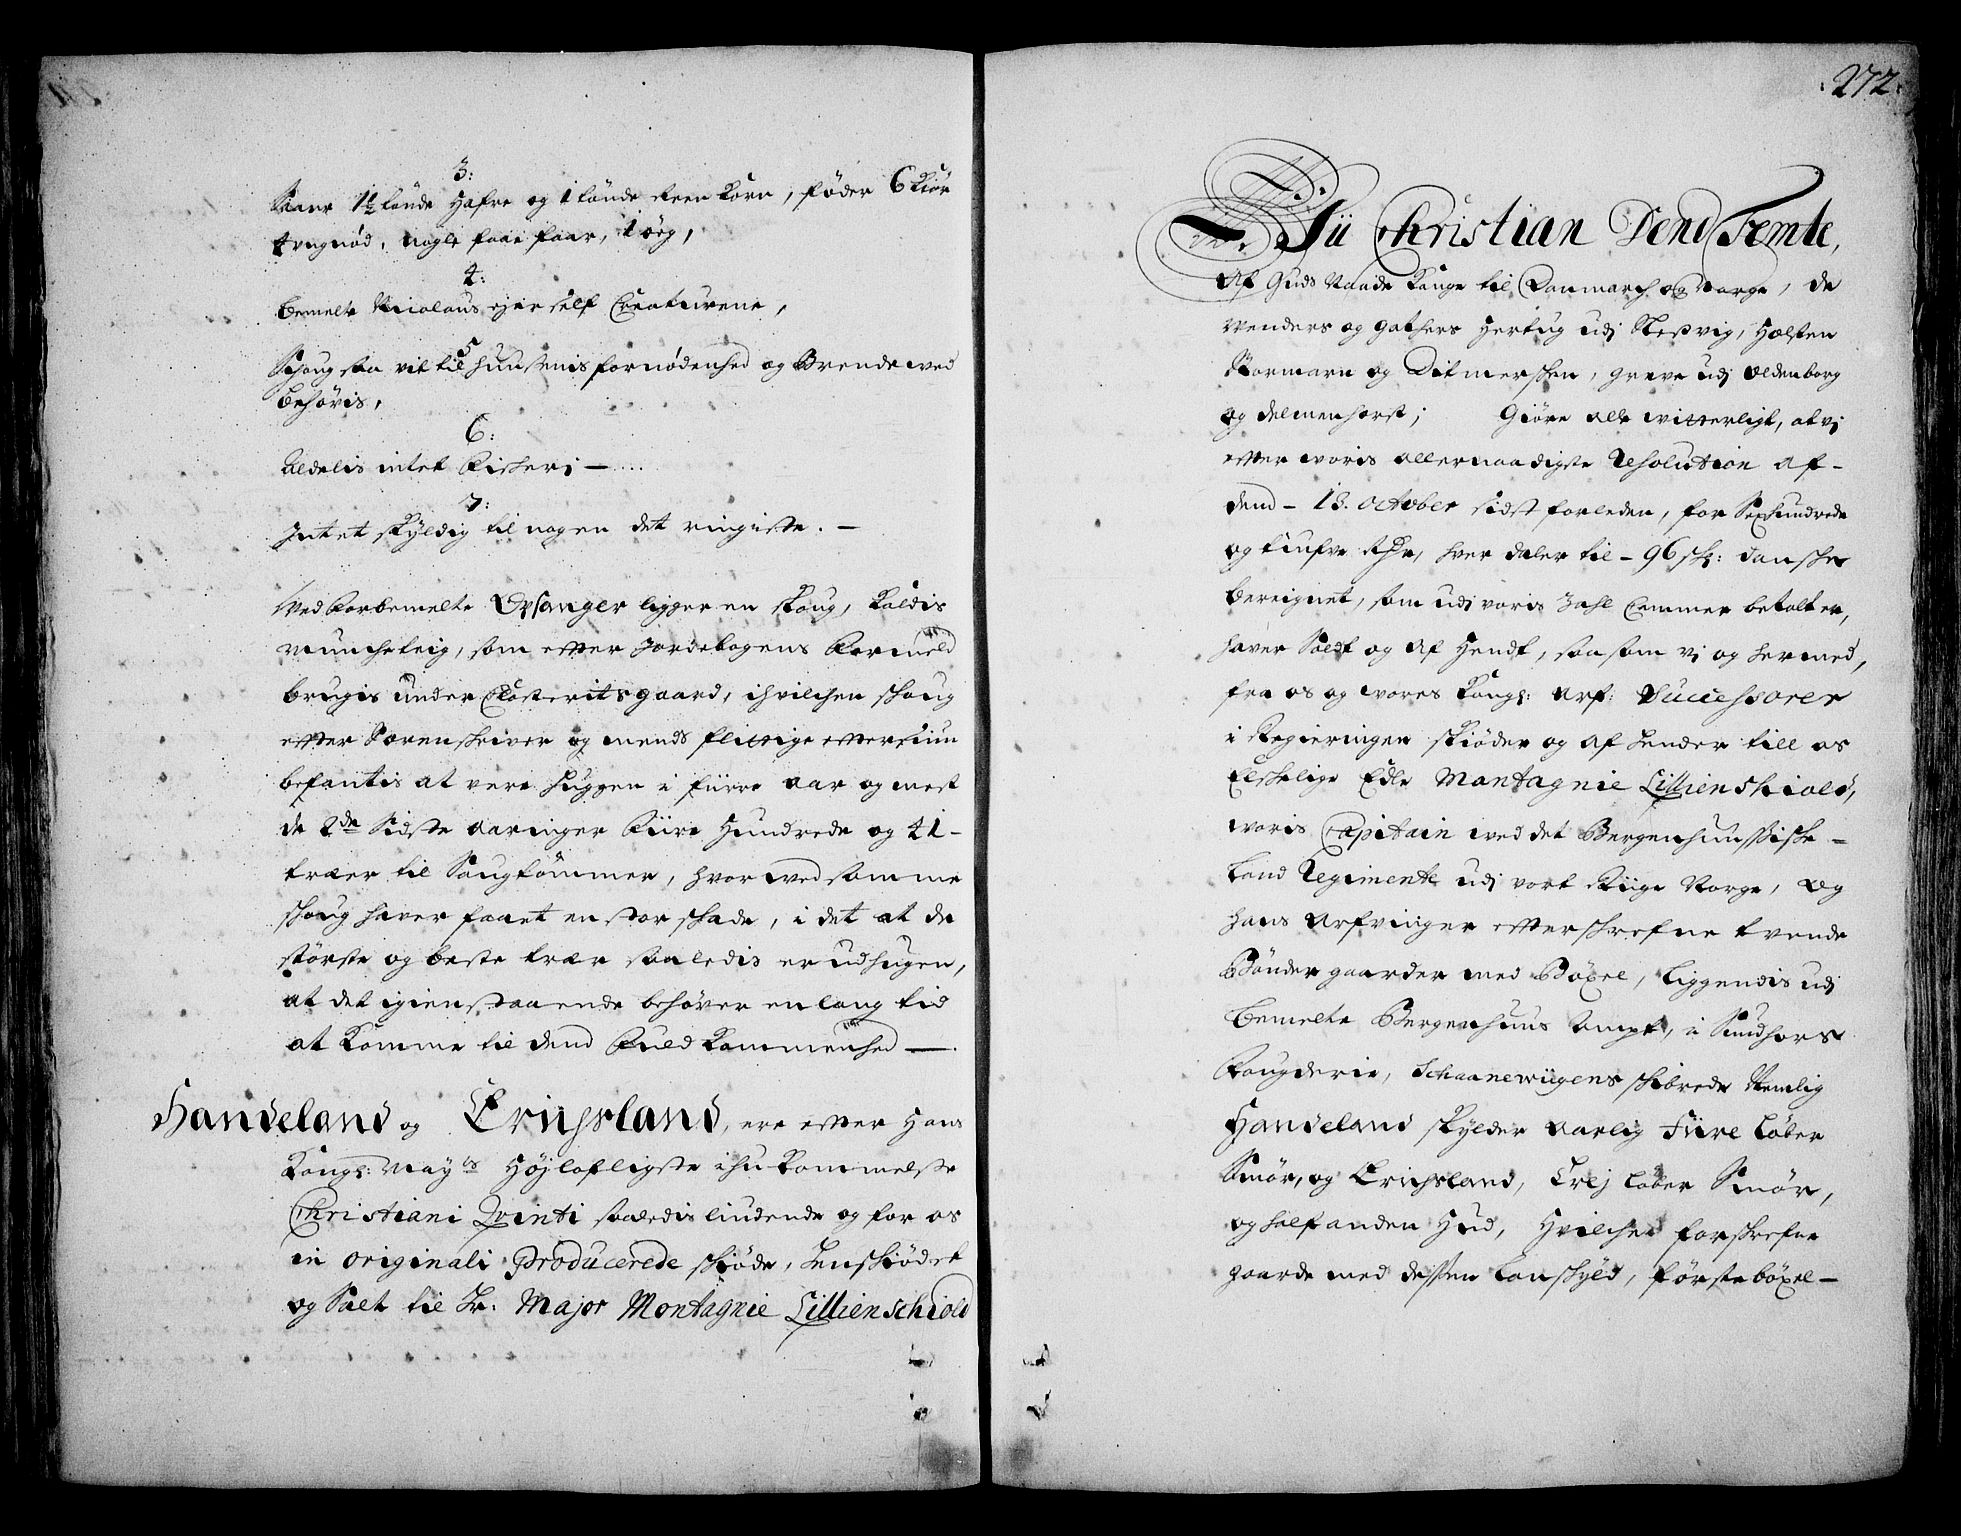 3:
Saar 1½ tønde Hafre og 1 tønde Reen Korn, føder 6 Kiør
4 ungnød, nogle faae faar, 1 øeg,
4:
bemelte Nicolaus ejer self Creaturene,
5
Schoug saa vit til Huusenis fornødenhed og Brendeved
behøvis,
6:
Aldelis intet Fischeri —
7:
Intet skÿldig til nogen det ringiste. —
Ved forbemelte Opsanger ligger en skoug, kaldis
Muncheteig, som efter Jordebogens formeld
brugis under Closteritsgaard, ihvilchen schoug
efter Sorenskriver og mends flittige eftersiun
befantis at vere huggen i fiirre aar og mest
de 2de Sidste aaringer fiire Hundrede og 41 -
træer til Saugtømmer, hvorved samme
schoug haver faaet en stor schade, i det at de
største og beste trær saaledis er udhugen,
at det igienstaaende behøver en lang tid
at komme til dend fuldkommenhed —.
Handeland og Erichsland, ere efter Hans
Kongl: Mayts Højlofligste ihukommelse
Christiani Qvinti saaledis liudende og for os
in originali producerede schiøde, henschiødet
og Solt til Hr. Major Montagnie Lillienschiold
272.
Vii Christian Dend Femte,
Af Guds Naade Konge til Danmarch og Norge, de
Wenders og Gothers Hertug udj Slesvig, Holsten
Stormarn og Ditmerschen, Greve udj Oldenborg
og Delmenhorst; Giøre alle witterligt, at vj
efter woris allernaadigste Resolution af -
dend - 13. october sidst forleden, for Sexhundrede
og tiufve Rdr, hver daler til - 96 sk: danske
bereignet, som udj voris Zahl Cammer betalt er,
haver Soldt og Af Hendt, saasom vj og hermed,
fra os og wores Kongl: Arf: Successorer
i Regieringen skiøder og af hender till os
Elskelige Edle Montagnie Lillienskiold,
voris Capitain ved det Bergenhuussiske -
Land Regimente udj vort Riige Norge, og
hans Arfvinger efterschrefne tvende
Bønder gaarder med Bøxel, liggendis udj
bemelte Bergenhuus Ampt, i Sundhors
Fougderie, Schaanewiigens schibrede Nemlig
Handeland skÿlder aarlig Fiire Løber
Smør, og Erichsland, Trej Løber Smør,
og half anden Hud, Hvilche forskrefne
gaarde med dessen Landskÿld, førstebøxel —